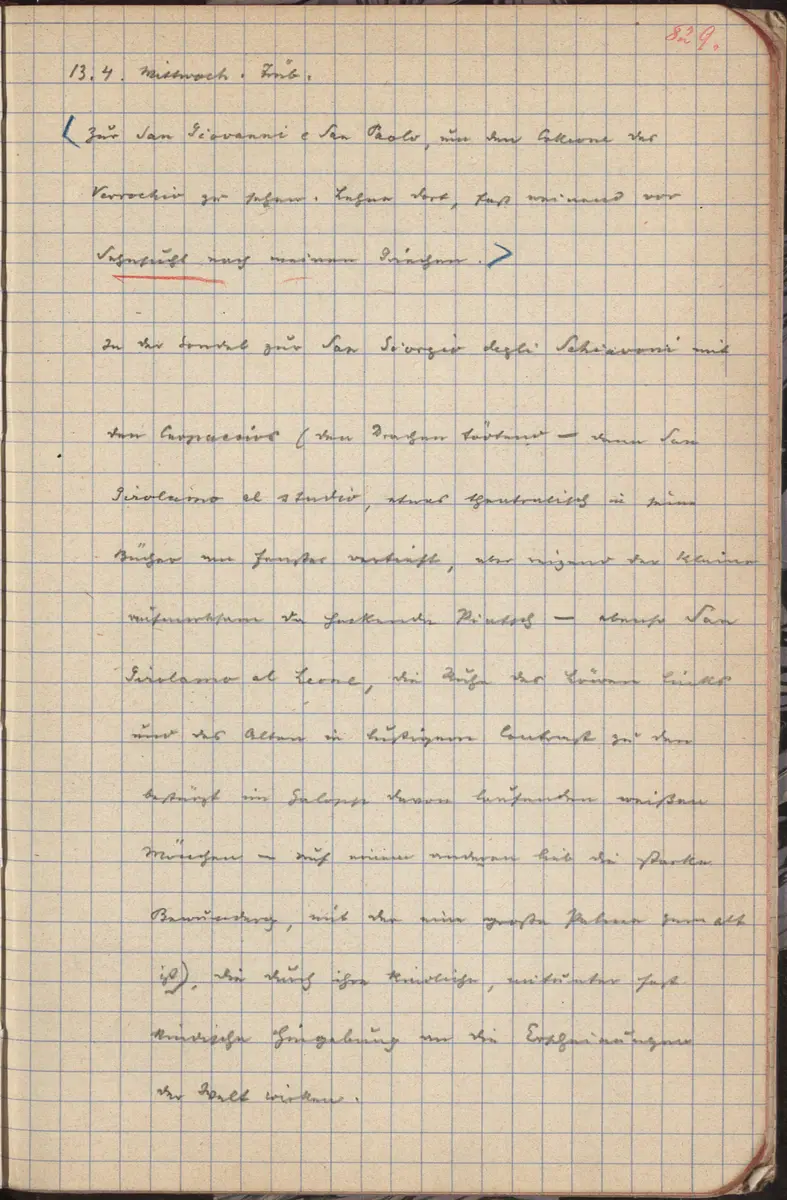 829.
13.4. Mittwoch. Trüb.
Zur San Giovanni e San Paolo, um den Colleone des
Verrochio zu sehen. Lehne dort, fast weinend vor
Sehnsucht nach meinen Griechen.
In der Gondel zur San Giorgio degli Schiavoni mit
den Carpaccios (den Drachen tötend – dann San
Girolamo al studio, etwas theatralisch in seine
Bücher am Fenster vertieft, aber reizend der kleine
aufmerksam da hockende Pintsch – ebenso San
Girolamo al Leone, die Ruhe des Löwen links
und des Alten in lustigem Contrast zu den
bestürzt im Galopp davon laufenden weißen
Mönchen – auf einem anderen lieb die starke
Bewunderg, mit der eine große Palme gemalt
ist), die durch ihre kindliche, mitunter fast
kindische Hingebung an die Erscheinungen
der Welt wirken.